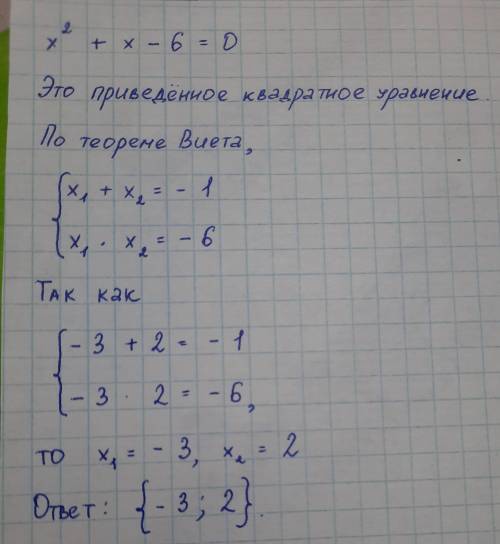 x² + x - 6 = 0
Это приведённое квадратное уравнение.
По теореме Виета,
{ x₁ + x₂ = - 1
x₁ · x₂ = - 6
Так как
{ - 3 + 2 = - 1
- 3 · 2 = - 6,
то x₁ = - 3, x₂ = 2
Ответ: {- 3; 2}.